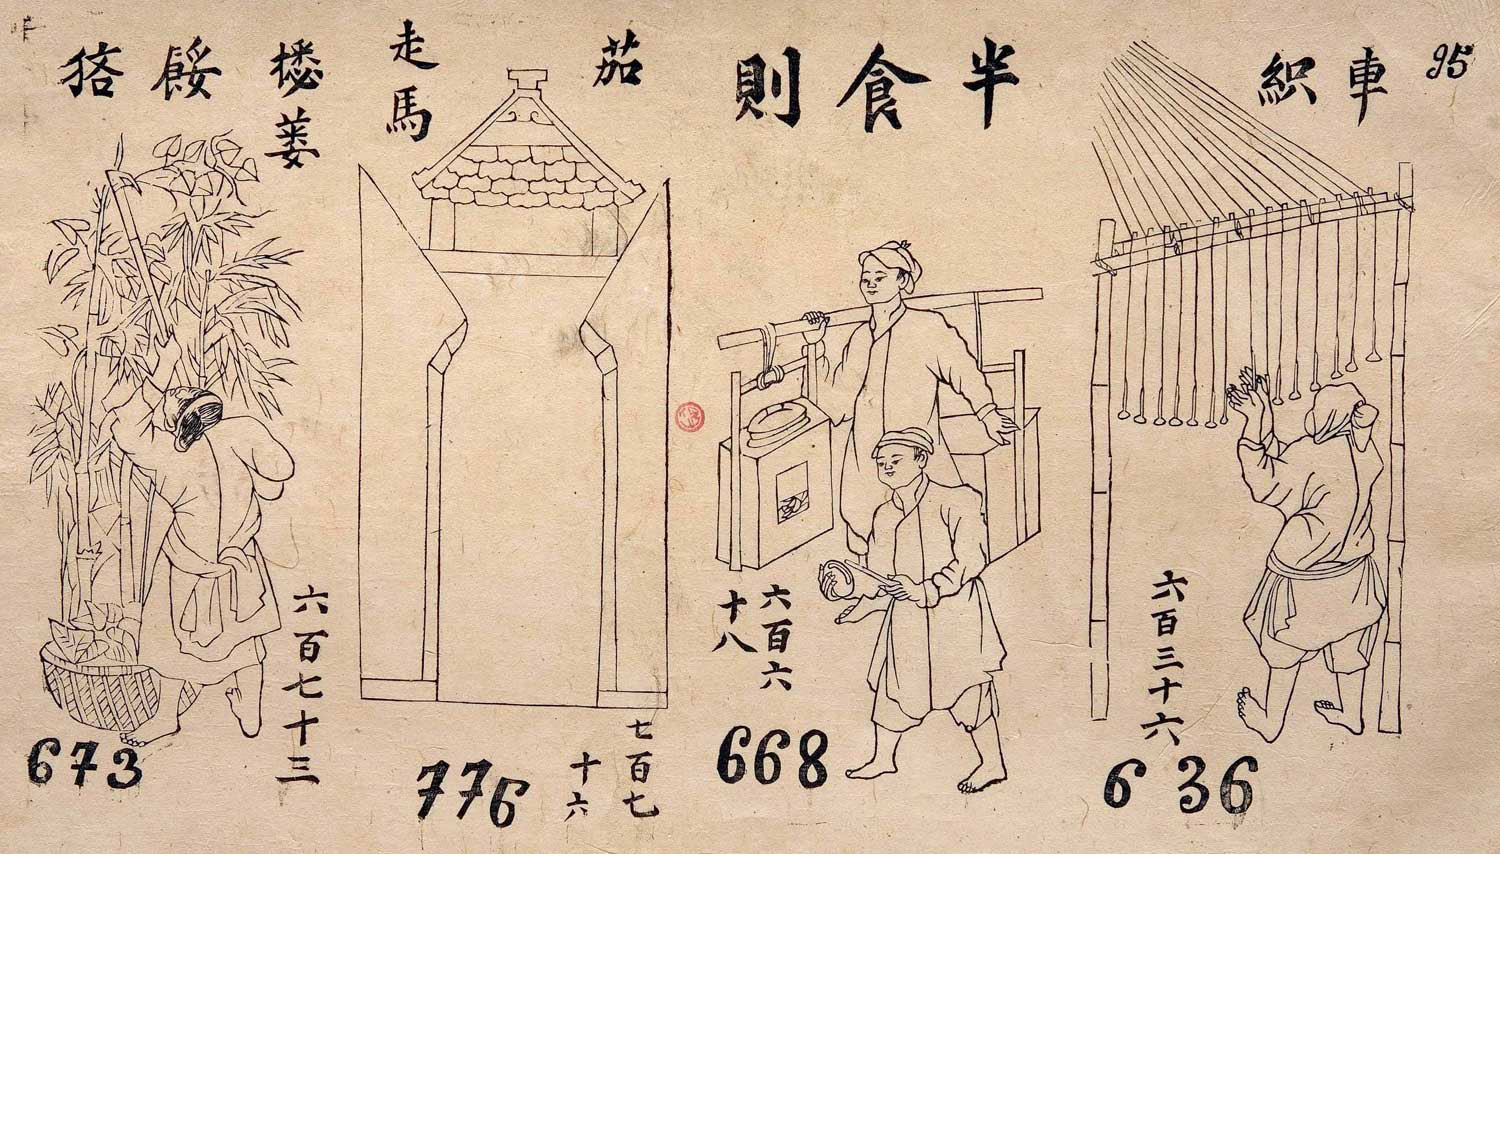 95
車織
六百三十六
636
半食則
六百六
十八
668
茄
走馬
七百七
十六
776
六百七十三
673